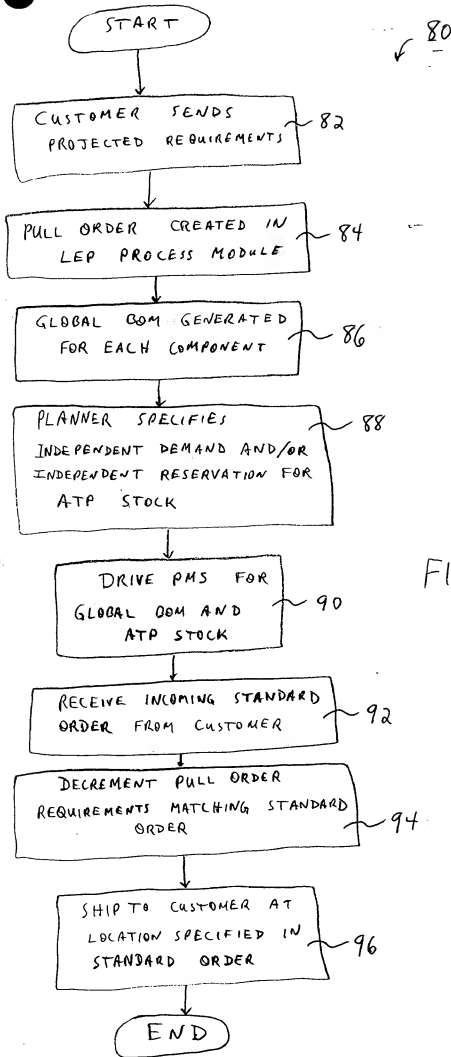 START
80
CUSTOMER SENDS
PROJECTED REQUIREMENTS
82
PULL ORDER CREATED IN
LEP PROCESS MODULE
84
GLOBAL BOM GENERATED
FOR EACH COMPONENT
86
PLANNER SPECIFIES
INDEPENDENT DEMAND AND/OR
INDEPENDENT RESERVATION FOR
ATP STOCK
88
DRIVE PMS FOR
GLOBAL BOM AND
ATP STOCK
90
FI
RECEIVE INCOMING STANDARD
ORDER FROM CUSTOMER
92
DECREMENT PULL ORDER
REQUIREMENTS MATCHING STANDARD
ORDER
94
SHIP TO CUSTOMER AT
LOCATION SPECIFIED IN
STANDARD ORDER
96
END